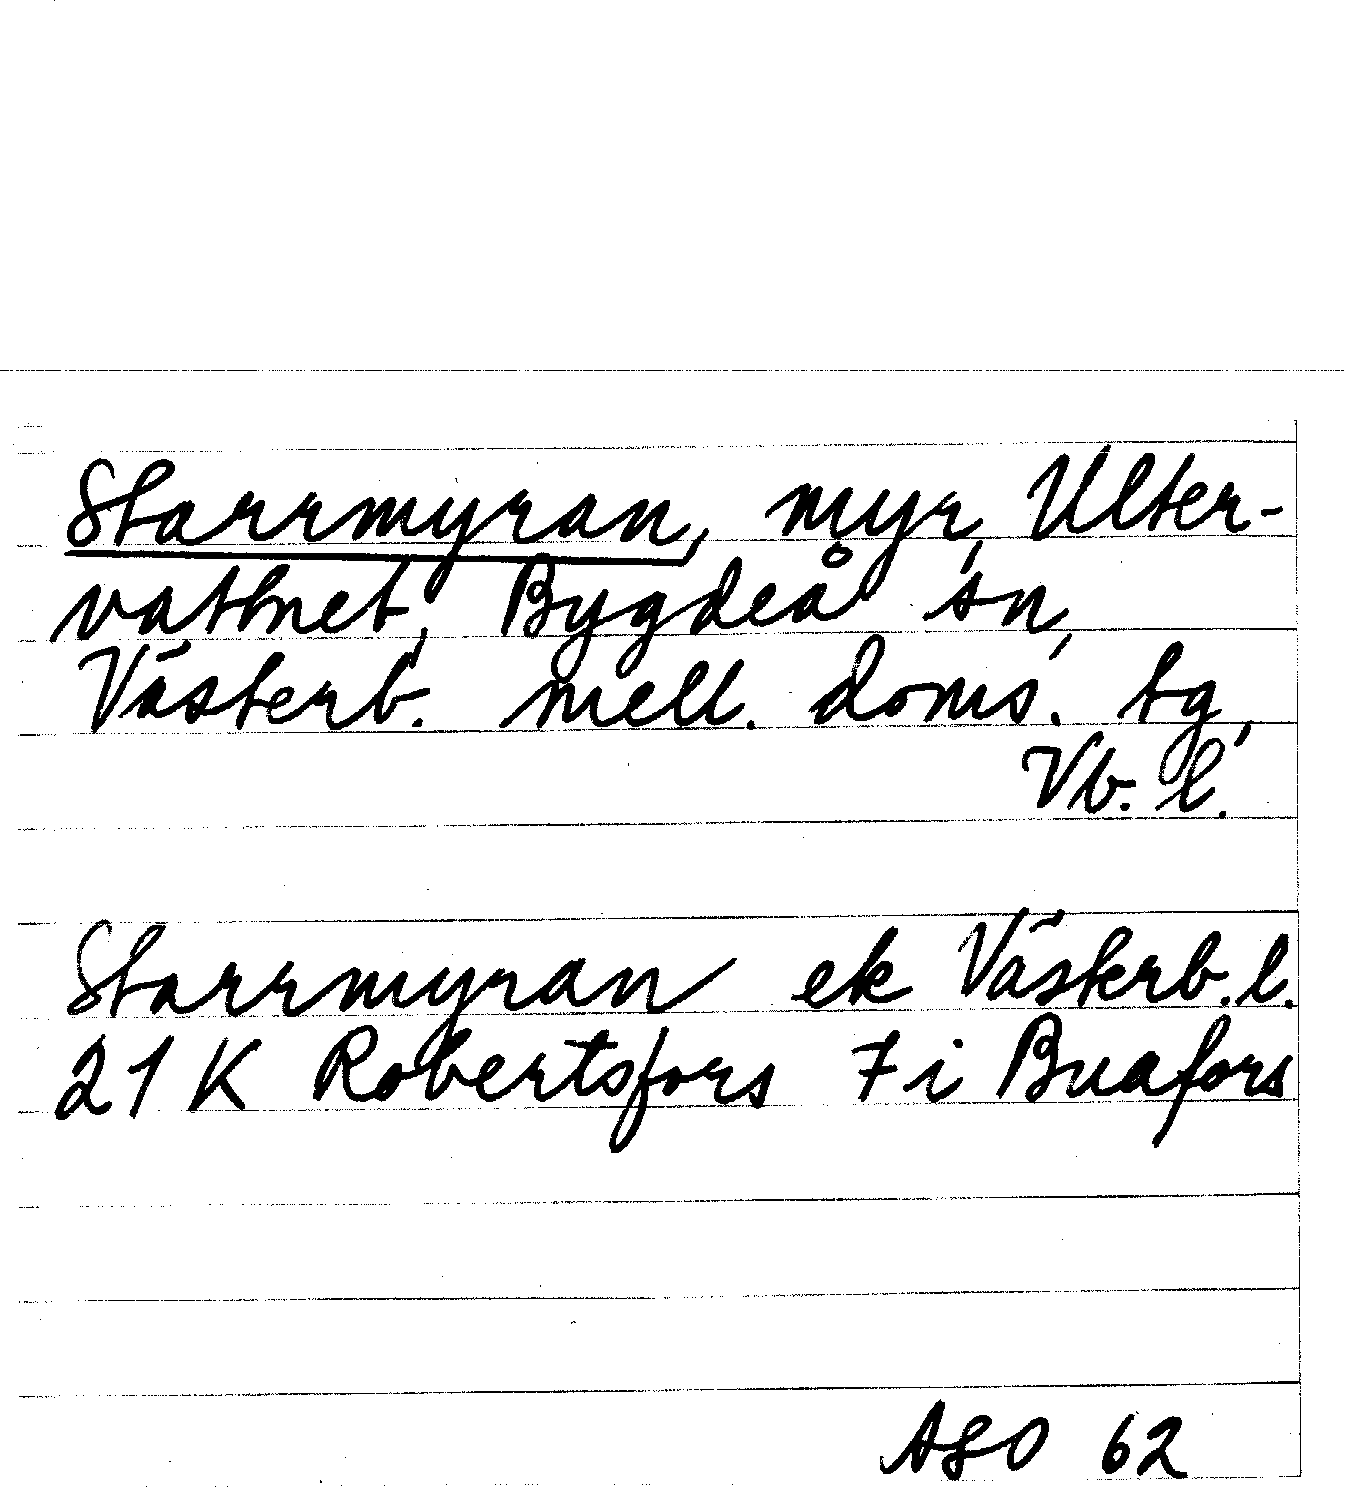 Starrmyran, myr, Ulter-
vattnet, Bygdeå sn,
Västerb. mell. doms. tg,
Vb. l.
Starrmyran ek Västerb. l.
21 K Robertsfors 7 i Buafors
ASO 62